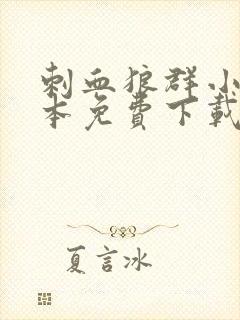 刺血狼群小
本免費下載
夏言冰